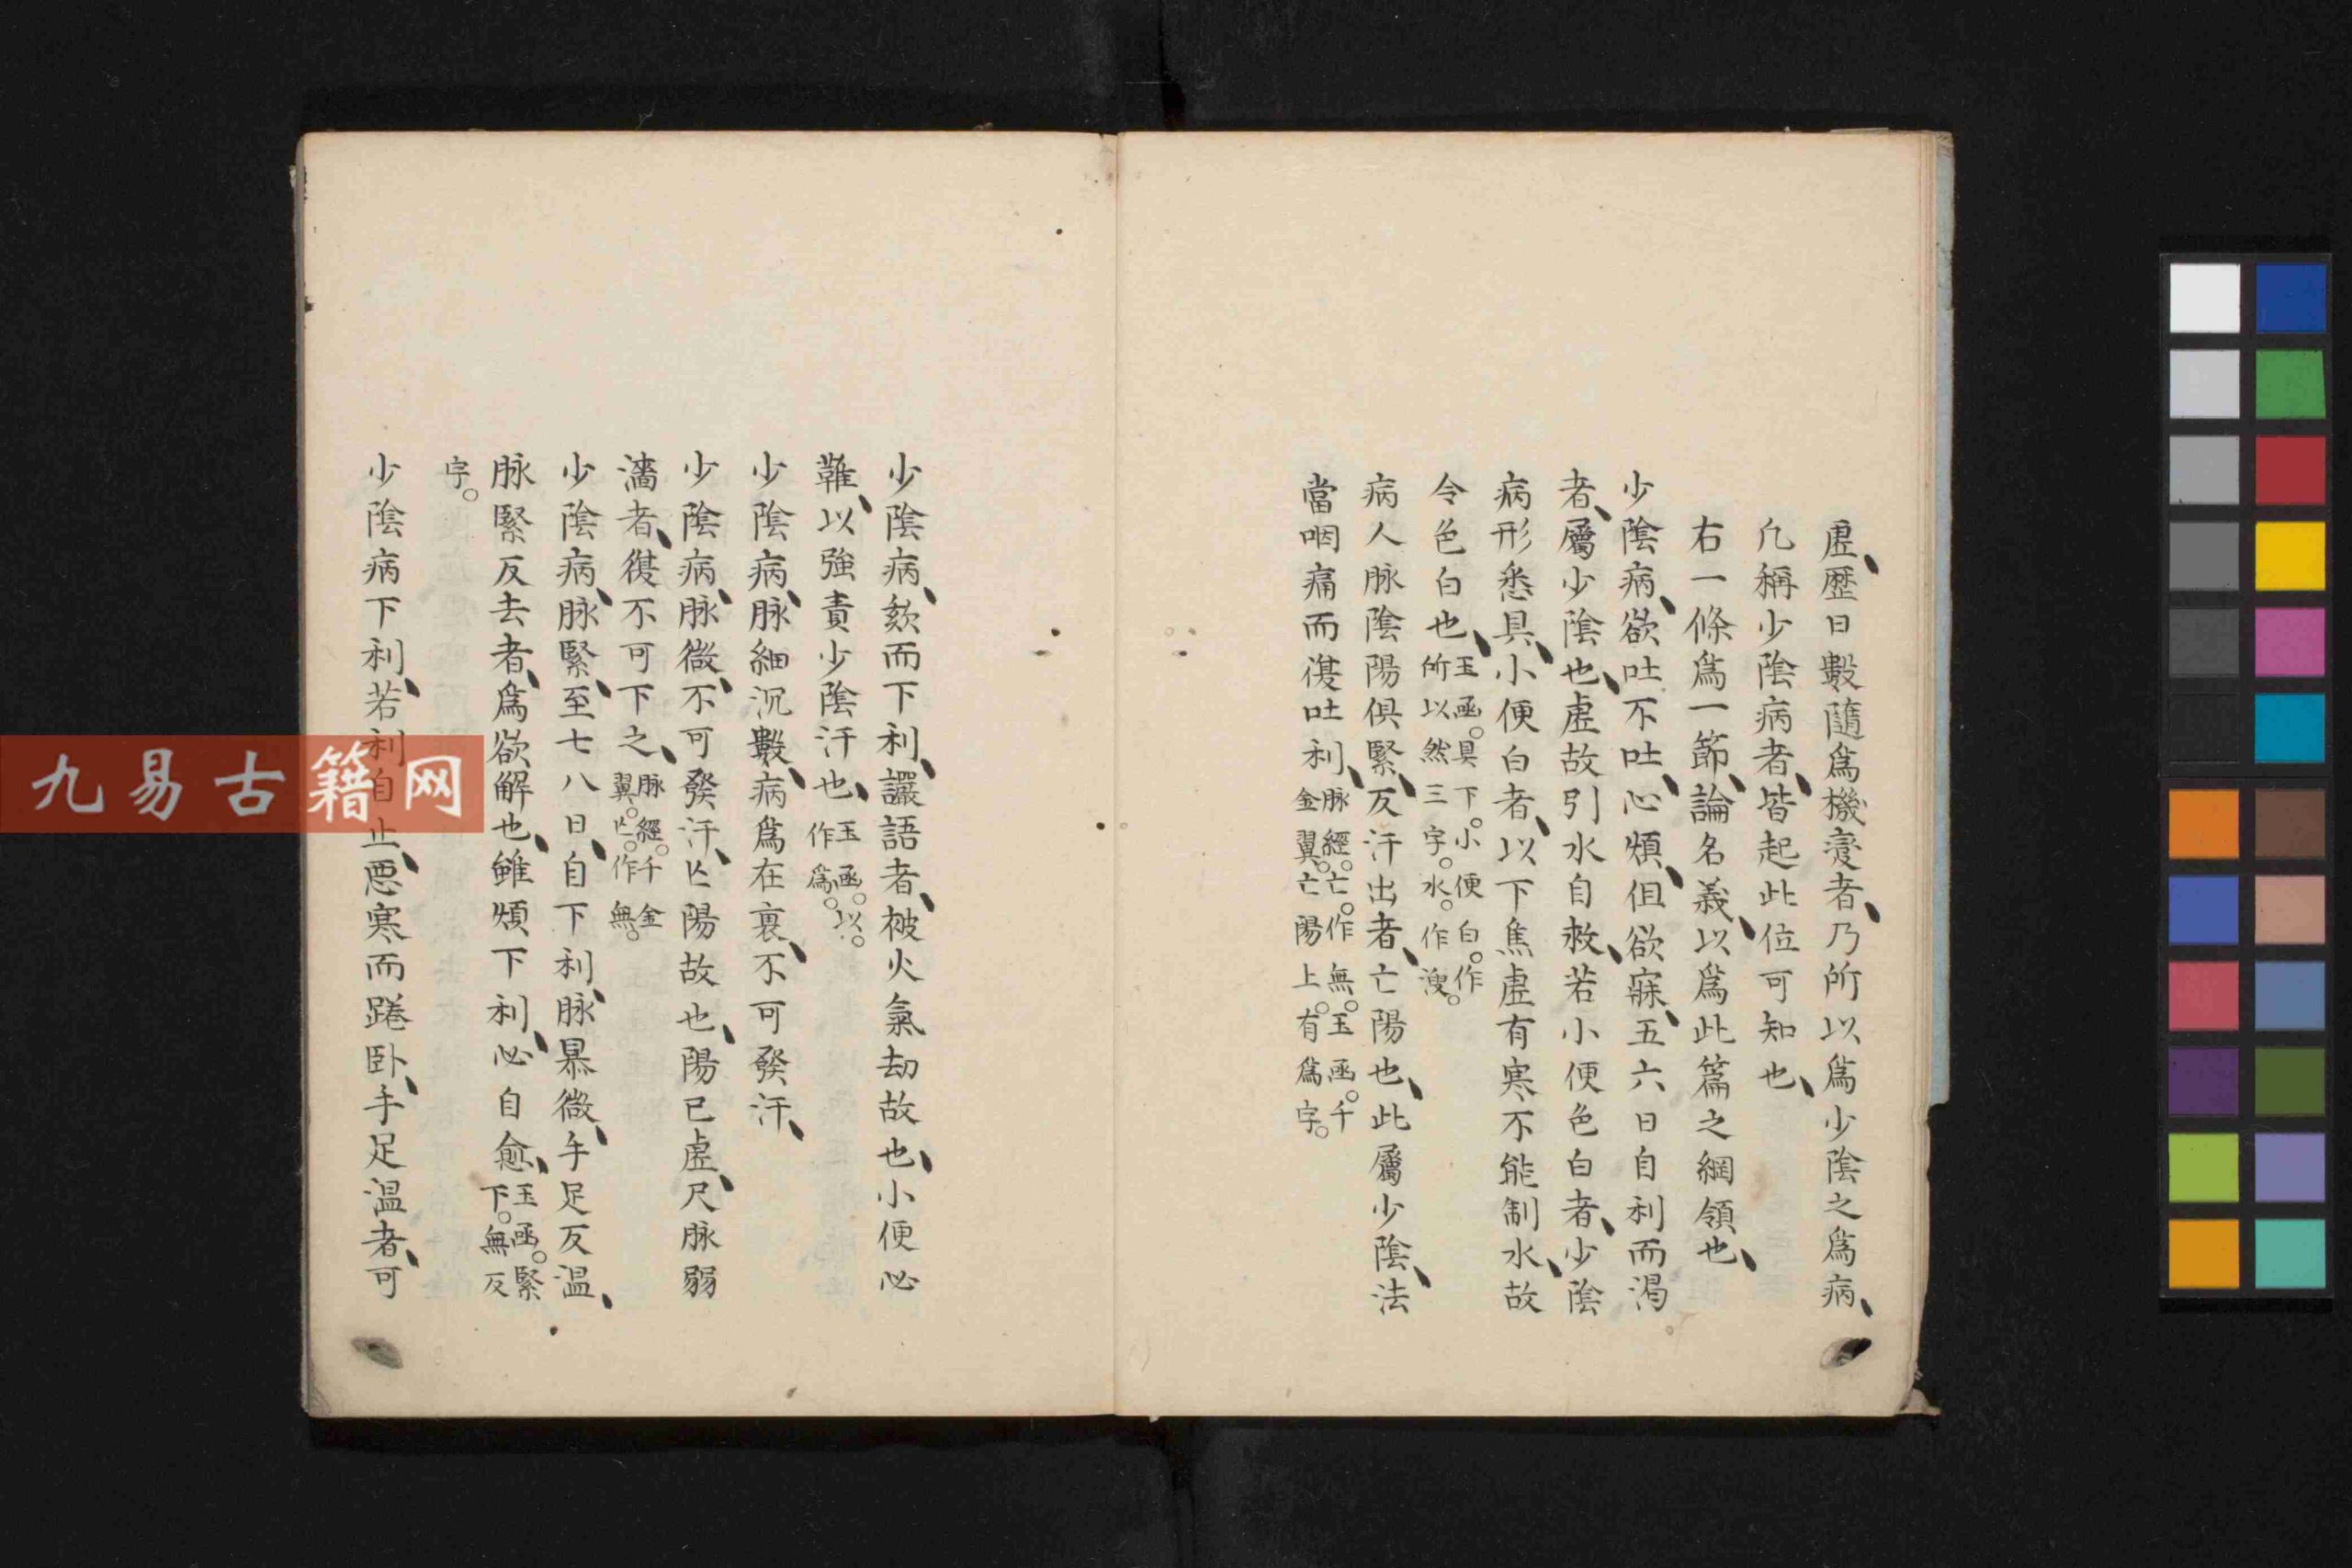 虛、歷日數隨爲機変者、乃所以爲少陰之爲病、
凡稱少陰病者、皆起此位可知也、
右一條爲一節、論名義、以爲此篇之綱領也、
少陰病、欲吐不吐、心煩、但欲寐、五六日自利而渴
者、屬少陰也、虛故引水自救、若小便色白者、少陰
病形悉具、小便白者、以下焦虛有寒不能制水、故
令色白也、玉函。具下。小便白。作所以然三字。水。作溲。
病人脉陰陽俱緊、反汗出者、亡陽也、此屬少陰、法
當咽痛而復吐利、脉經。亡。作無。玉函。千金翼。亡陽上。有爲字。
少陰病、欬而下利、讝語者、被火氣劫故也、小便必
難、以強責少陰汗也、玉函。以。作爲。
少陰病、脉細沉數、病爲在裏、不可發汗、
少陰病、脉微、不可發汗、亾陽故也、陽已虛、尺脉弱
濇者、復不可下之、脉經。千金翼。亾。作無。
少陰病、脉緊、至七八日、自下利、脉暴微、手足反温、
脉緊反去者、爲欲解也、雖煩下利、必自愈、玉函。緊下。無反
字。
少陰病下利、若利自止、悪寒而踡卧、手足温者、可
九易古籍网